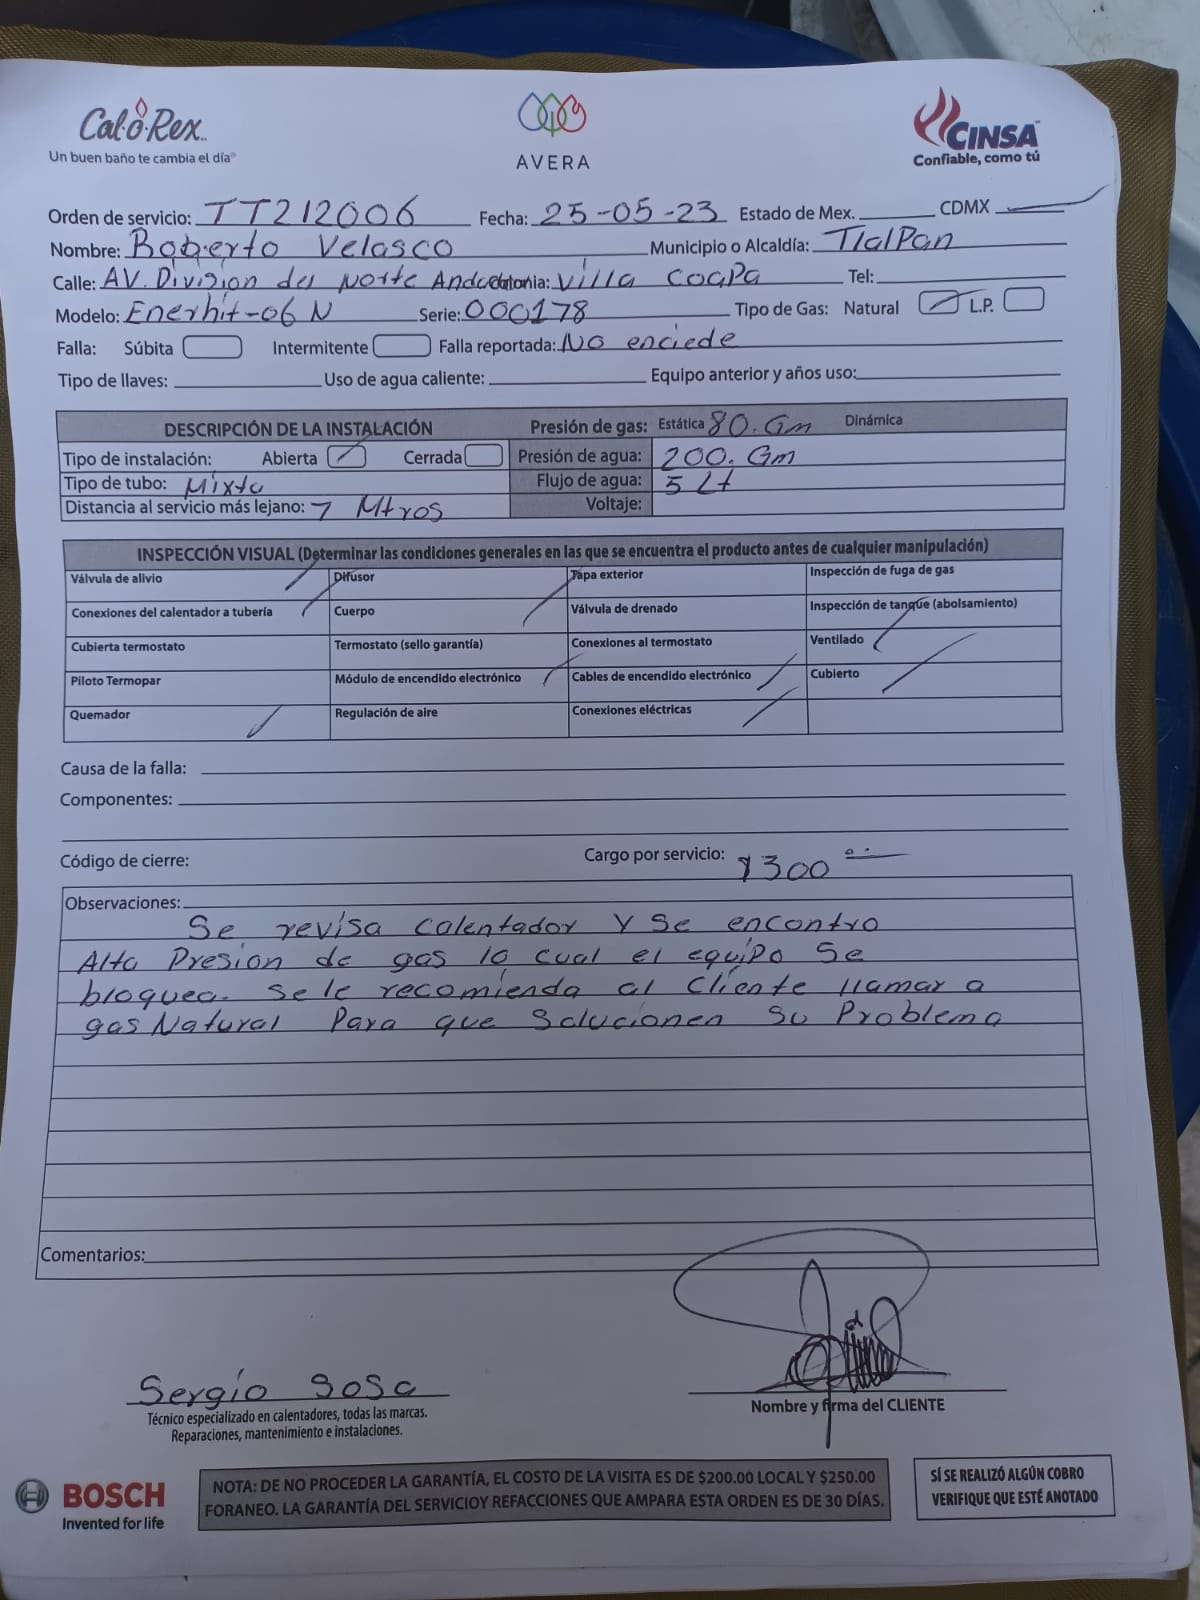 Cal-o-Rex
Un buen baño te cambia el día®
AVERA
CINSA™
Confiable, como tú
Orden de servicio: TT212006 Fecha: 25-05-23 Estado de Mex. CDMX
Nombre: Roberto Velasco Municipio o Alcaldía: TlalPan
Calle: AV. Division del Norte Colonia: Villa CoaPa Tel:
Modelo: Enerhit-06 N Serie: 000178 Tipo de Gas: Natural L.P.
Falla: Súbita Intermitente Falla reportada: No enciede
Tipo de llaves: Uso de agua caliente: Equipo anterior y años uso:
DESCRIPCIÓN DE LA INSTALACIÓN Presión de gas: Estática 80. Gm Dinámica
Tipo de instalación: Abierta Cerrada Presión de agua: 200. Gm
Tipo de tubo: Mixto Flujo de agua: 5 Lt
Distancia al servicio más lejano: 7 Mtros Voltaje:
INSPECCIÓN VISUAL (Determinar las condiciones generales en las que se encuentra el producto antes de cualquier manipulación)
Válvula de alivio Difusor Tapa exterior Inspección de fuga de gas
Conexiones del calentador a tubería Cuerpo Válvula de drenado Inspección de tanque (abolsamiento)
Cubierta termostato Termostato (sello garantía) Conexiones al termostato Ventilado
Piloto Termopar Módulo de encendido electrónico Cables de encendido electrónico Cubierto
Quemador Regulación de aire Conexiones eléctricas
Causa de la falla:
Componentes:
Código de cierre: Cargo por servicio: $300
Observaciones:
Se revisa calentador y se encontro
Alta Presion de gas lo cual el equipo Se
bloquea. Se le recomienda al Cliente llamar a
gas Natural Para que Solucionen Su Problema
Comentarios:
Sergio Sosa
Técnico especializado en calentadores, todas las marcas.
Reparaciones, mantenimiento e instalaciones.
Nombre y firma del CLIENTE
BOSCH
Invented for life
NOTA: DE NO PROCEDER LA GARANTÍA, EL COSTO DE LA VISITA ES DE $200.00 LOCAL Y $250.00
FORANEO. LA GARANTÍA DEL SERVICIOY REFACCIONES QUE AMPARA ESTA ORDEN ES DE 30 DÍAS.
SÍ SE REALIZÓ ALGÚN COBRO
VERIFIQUE QUE ESTÉ ANOTADO